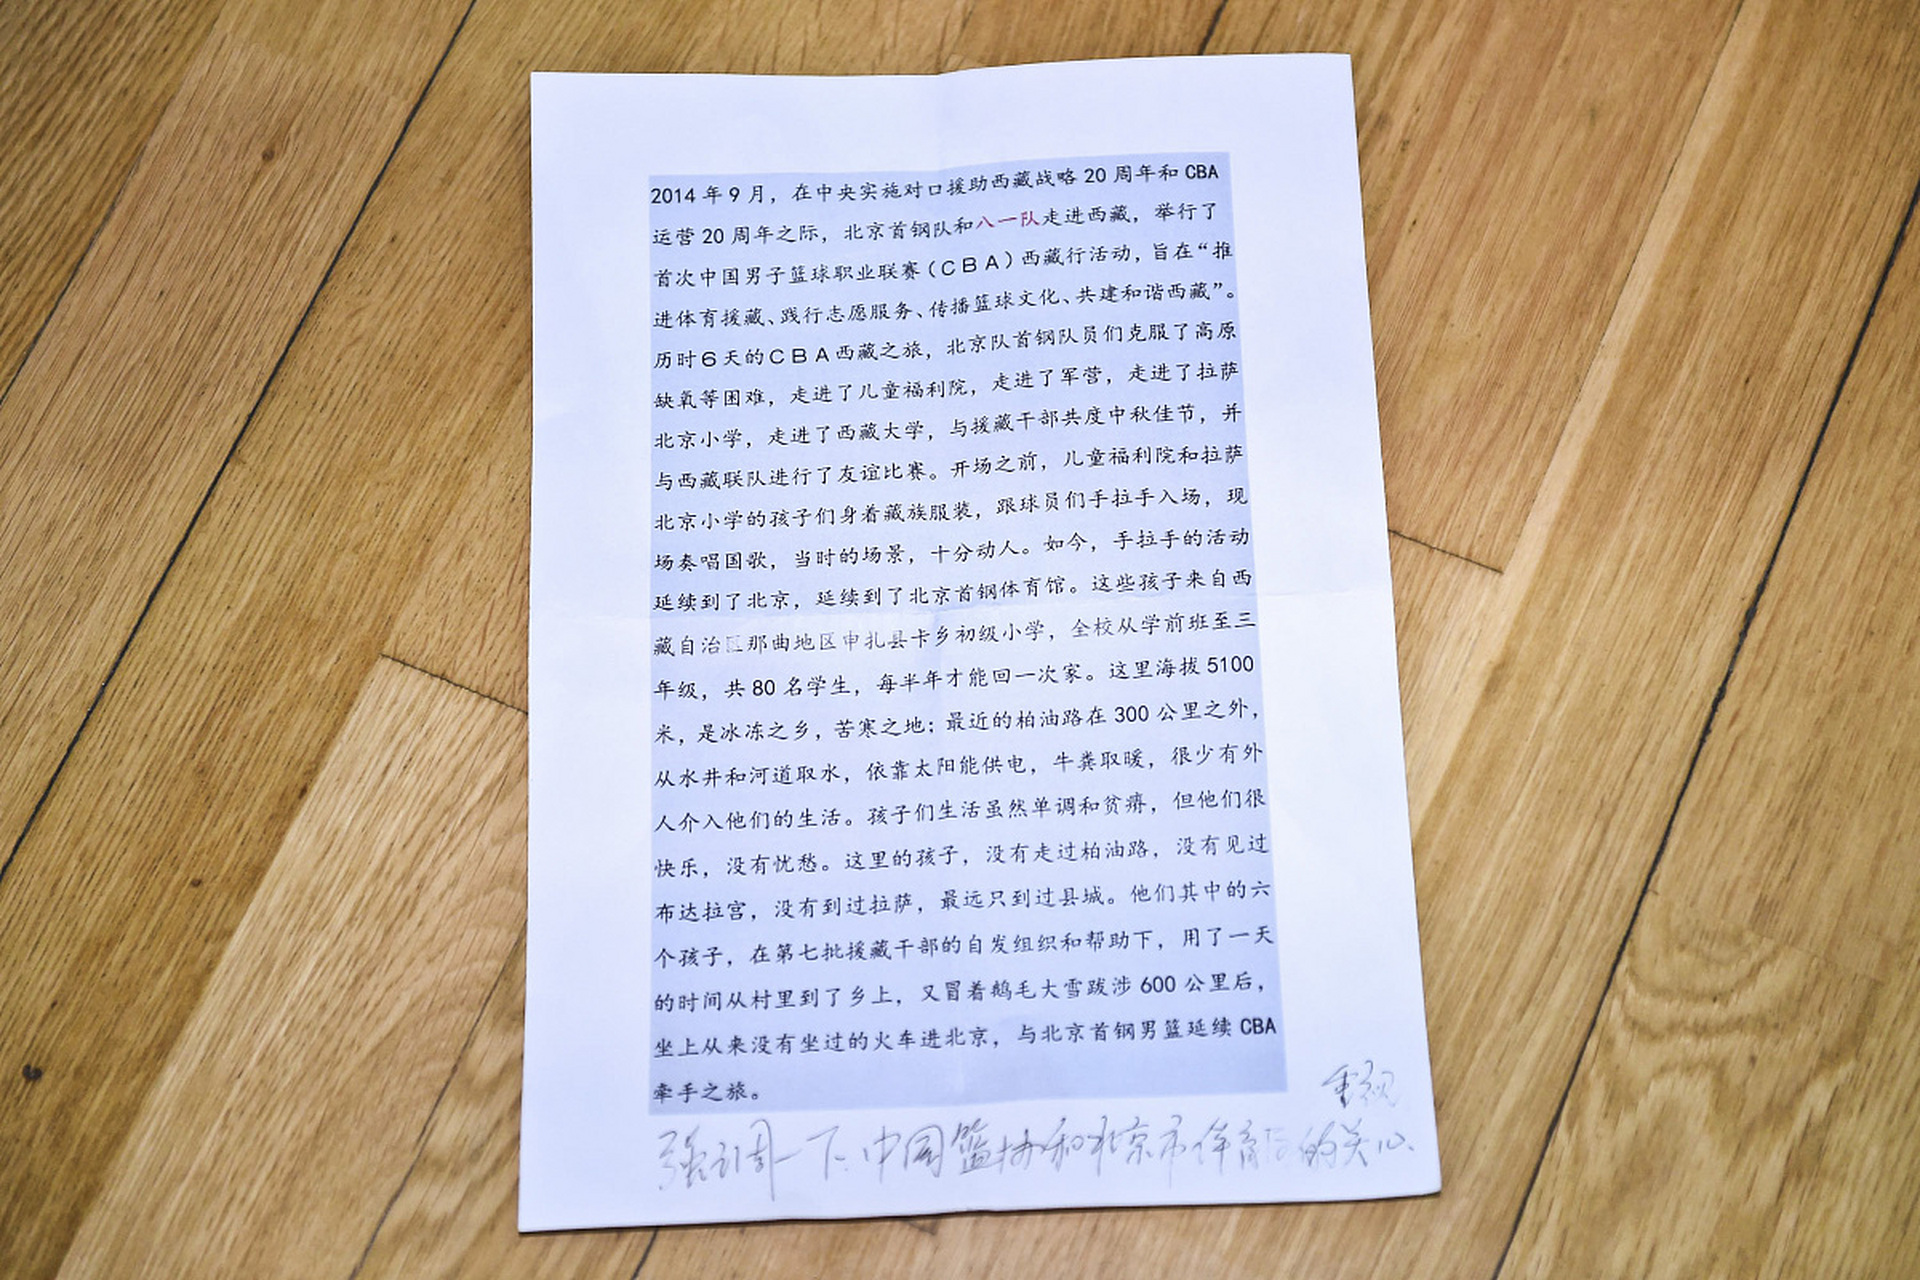 2014 年 9 月，在中央实施对口援助西藏战略 20 周年和 CBA
运营 20 周年之际，北京首钢队和八一队走进西藏，举行了
首次中国男子篮球职业联赛（ＣＢＡ）西藏行活动，旨在“推
进体育援藏、践行志愿服务、传播篮球文化、共建和谐西藏”。
历时６天的ＣＢＡ西藏之旅，北京队首钢队员们克服了高原
缺氧等困难，走进了儿童福利院，走进了军营，走进了拉萨
北京小学，走进了西藏大学，与援藏干部共度中秋佳节，并
与西藏联队进行了友谊比赛。开场之前，儿童福利院和拉萨
北京小学的孩子们身着藏族服装，跟球员们手拉手入场，现
场奏唱国歌，当时的场景，十分动人。如今，手拉手的活动
延续到了北京，延续到了北京首钢体育馆。这些孩子来自西
藏自治区那曲地区申扎县卡乡初级小学，全校从学前班至三
年级，共 80 名学生，每半年才能回一次家。这里海拔 5100
米，是冰冻之乡，苦寒之地；最近的柏油路在 300 公里之外，
从水井和河道取水，依靠太阳能供电，牛粪取暖，很少有外
人介入他们的生活。孩子们生活虽然单调和贫瘠，但他们很
快乐，没有忧愁。这里的孩子，没有走过柏油路，没有见过
布达拉宫，没有到过拉萨，最远只到过县城。他们其中的六
个孩子，在第七批援藏干部的自发组织和帮助下，用了一天
的时间从村里到了乡上，又冒着鹅毛大雪跋涉 600 公里后，
坐上从来没有坐过的火车进北京，与北京首钢男篮延续 CBA
牵手之旅。
重视
强调一下.中国篮协和北京市体育局的关心.